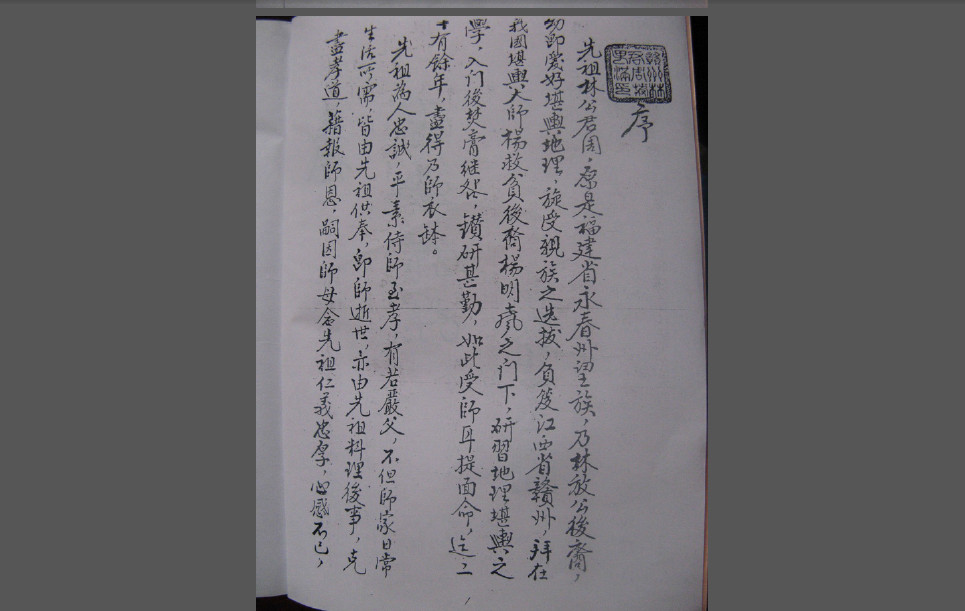 序
先祖林公君周，原是福建省永春州望族，乃林放公後裔，
幼即愛好堪輿地理，旋受親族之选拔，負笈江西省贛州，拜在
我國堪輿大師楊救貧後裔楊明之门下，研習地理堪輿之
學，入门後焚膏继晷，鑽研甚勤，如此受師耳提面命，迄二
十有餘年，盡得乃師衣缽。
先祖為人忠誠，平素侍師至孝，有若嚴父，不但師家日常
生活所需，皆由先祖供奉，即師逝世，亦由先祖料理後事，克
盡孝道，藉報師恩，嗣因師母念先祖仁義忠厚，心感不已，